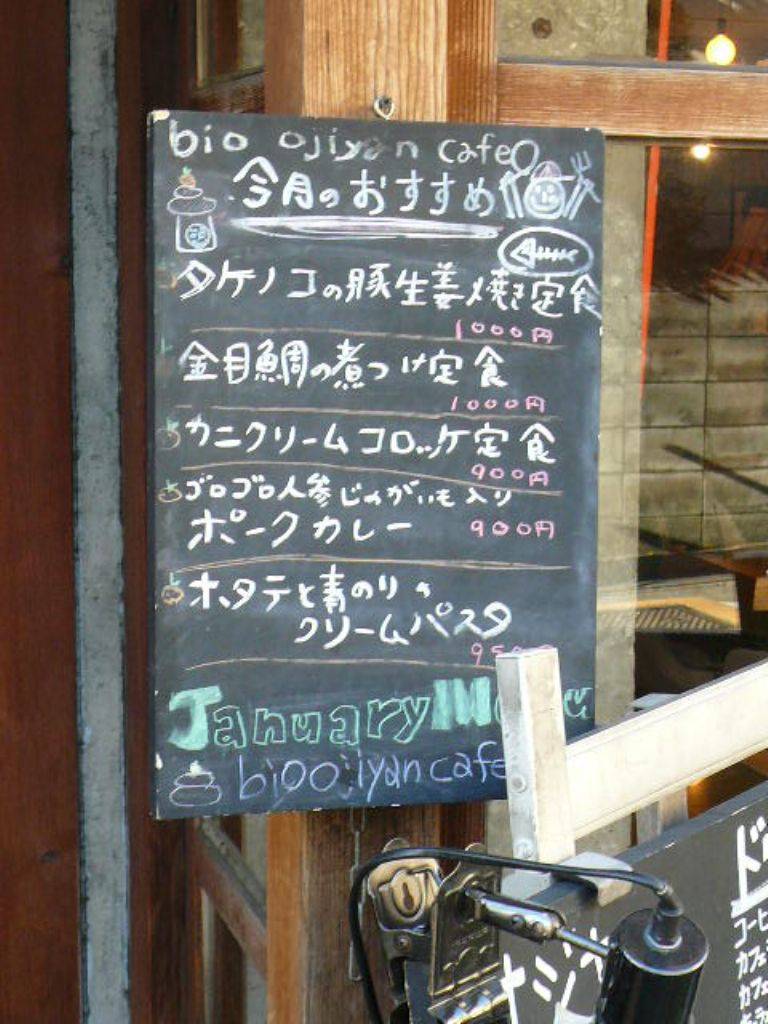 bio ojiyan cafe
今月のおすすめ
タケノコの豚生姜焼き定食
1000円
金目鯛の煮つけ定食
1000円
カニクリームコロッケ定食
900円
ゴロゴロ人参じゃがいも入り
ポークカレー 900円
ホタテと青のりの
クリームパスタ
January
bio ojiyan cafe
コーヒ
カフェ
カフェ